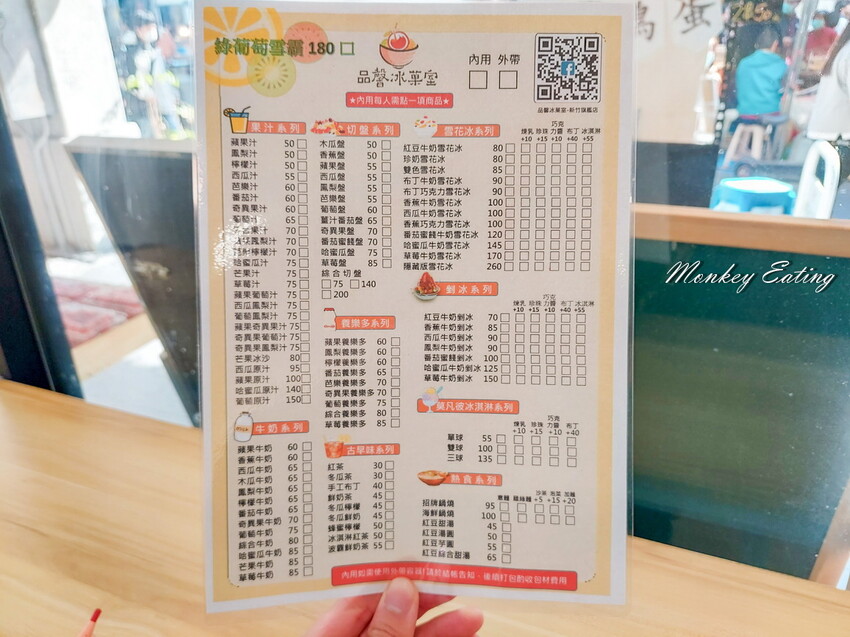 綠葡萄雪霸 180 口
品馨冰菓室
內用 外帶
★內用每人需點一項商品★
品馨冰菓室-新竹旗艦店
果汁系列
蘋果汁 50
鳳梨汁 50
檸檬汁 50
西瓜汁 55
芭樂汁 60
番茄汁 60
奇異果汁 60
葡萄汁 65
70
鳳梨汁 70
檸檬汁 70
哈蜜瓜汁 75
芒果汁 75
草莓汁 75
蘋果葡萄汁 75
西瓜鳳梨汁 75
葡萄鳳梨汁 75
蘋果奇異果汁 75
奇異果葡萄汁 75
奇異果鳳梨汁 75
芒果冰沙 80
西瓜原汁 95
蘋果原汁 100
哈蜜瓜原汁 140
葡萄原汁 150
牛奶系列
蘋果牛奶 60
香蕉牛奶 60
西瓜牛奶 65
木瓜牛奶 65
鳳梨牛奶 65
檸檬牛奶 65
番茄牛奶 65
奇異果牛奶 70
葡萄牛奶 75
綜合牛奶 80
哈蜜瓜牛奶 85
芒果牛奶 85
草莓牛奶 85
切盤系列
木瓜盤 50
香蕉盤 50
蘋果盤 55
西瓜盤 55
鳳梨盤 55
芭樂盤 55
葡萄盤 60
薑汁番茄盤 65
奇異果盤 70
番茄蜜餞盤 70
哈蜜瓜盤 75
草莓盤 85
綜合切盤
75 140
200
養樂多系列
蘋果養樂多 60
鳳梨養樂多 60
檸檬養樂多 60
番茄養樂多 65
芭樂養樂多 70
奇異果養樂多 70
葡萄養樂多 75
綜合養樂多 80
草莓養樂多 85
古早味系列
紅茶 30
冬瓜茶 30
手工布丁 40
鮮奶茶 45
冬瓜檸檬 45
冬瓜鮮奶 45
蜂蜜檸檬 50
冰淇淋紅茶 50
波霸鮮奶茶 55
雪花冰系列
煉乳 珍珠 巧克力醬 布丁 冰淇淋
+10 +15 +10 +40 +55
紅豆牛奶雪花冰 80
珍奶雪花冰 80
雙色雪花冰 85
布丁牛奶雪花冰 90
布丁巧克力雪花冰 90
香蕉牛奶雪花冰 100
西瓜牛奶雪花冰 100
香蕉巧克力雪花冰 100
番茄蜜餞牛奶雪花冰 120
哈蜜瓜牛奶雪花冰 145
草莓牛奶雪花冰 170
隱藏版雪花冰 260
剉冰系列
煉乳 珍珠 巧克力醬 布丁 冰淇淋
+10 +15 +10 +40 +55
紅豆牛奶剉冰 70
香蕉牛奶剉冰 85
西瓜牛奶剉冰 90
鳳梨牛奶剉冰 90
番茄蜜餞剉冰 100
哈蜜瓜牛奶剉冰 125
草莓牛奶剉冰 150
莫凡彼冰淇淋系列
煉乳 珍珠 巧克力醬 布丁
+10 +15 +10 +40
單球 55
雙球 100
三球 135
熱食系列
意麵 雞絲麵 沙茶 泡菜 加麵
+5 +15 +20
招牌鍋燒 95
海鮮鍋燒 100
紅豆甜湯 45
紅豆湯圓 50
紅豆芋圓 55
紅豆綜合甜湯 65
Monkey Eating